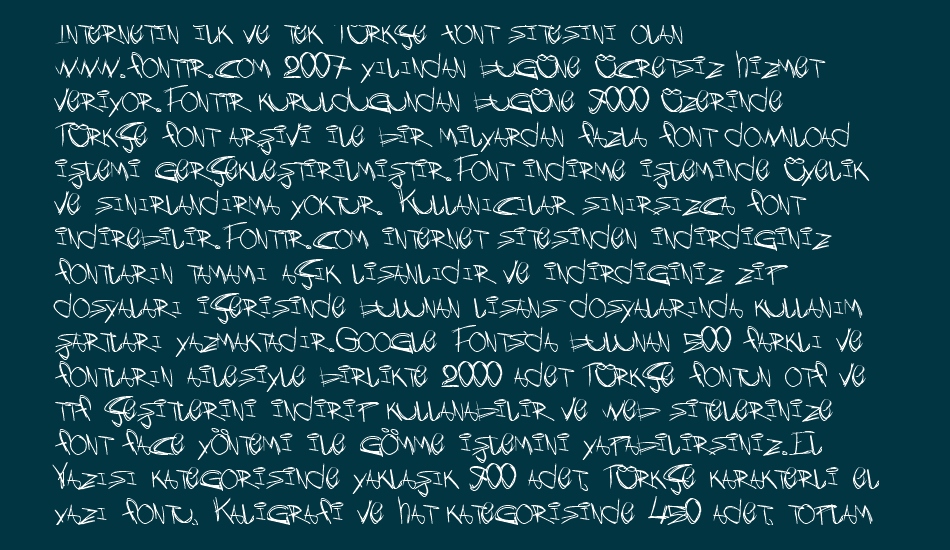 İnternetin ilk ve tek Türkçe font sitesini olan
www.fonttr.com 2007 yılından bugüne ücretsiz hizmet
veriyor. Fonttr kurulduğundan bugüne 9000 üzerinde
Türkçe font arşivi ile bir milyardan fazla font download
işlemi gerçekleştirilmiştir. Font indirme işleminde üyelik
ve sınırlandırma yoktur. Kullanıcılar sınırsızca font
indirebilir. Fonttr.com internet sitesinden indirdiginiz
fontların tamamı açık lisanlıdır ve indirdiginiz zip
dosyaları içerisinde bulunan lisans dosyalarında kullanım
şartları yazmaktadır. Google Fontsda bulunan 500 farklı ve
fontların ailesiyle birlikte 2000 adet Türkçe fontun otf ve
ttf çeşitlerini indirip kullanabilir ve web sitelerinize
font face yöntemi ile gömme işlemini yapabilirsiniz. El
Yazısı kategorisinde yaklaşık 900 adet, Türkçe karakterli el
yazı fontu, Kaligrafi ve hat kategorisinde 450 adet, toplam